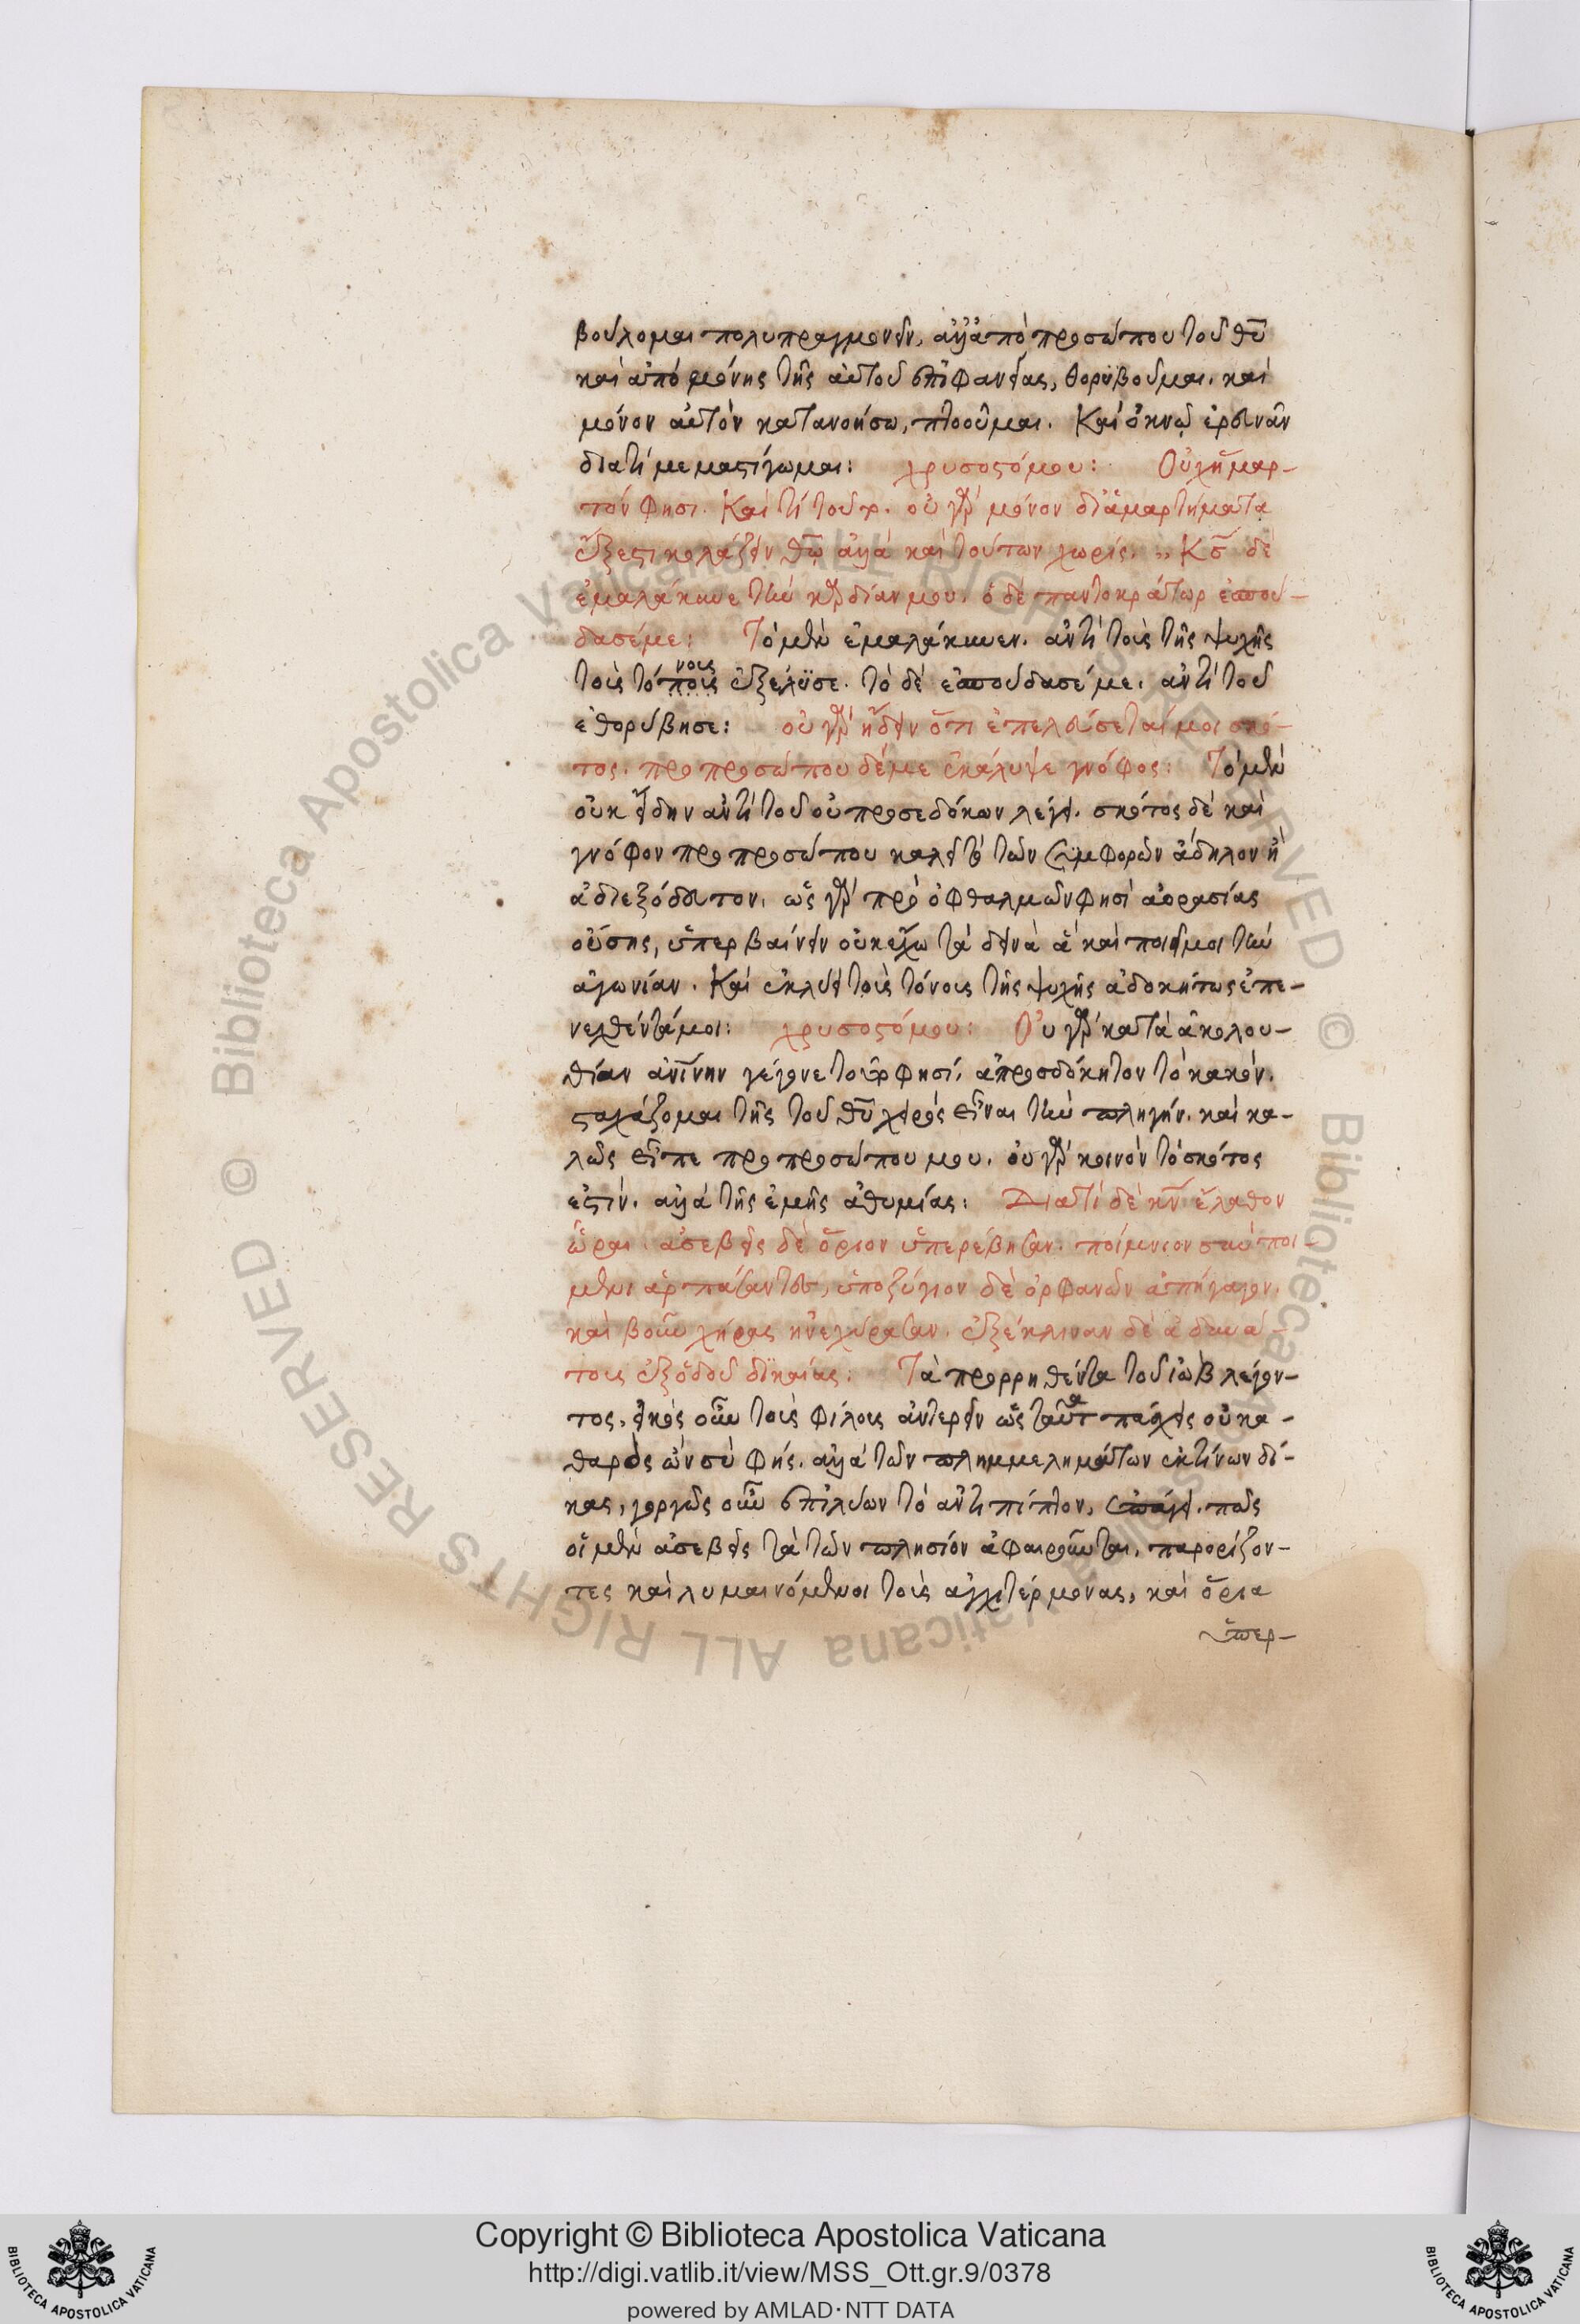 βούλομαι πολυπραγμονεῖν, ἀλλ' ἀπὸ προσώπου τοῦ θυ
καὶ ἀπὸ μόνης τῆς αὐτοῦ ἐπιφανείας, θορυβοῦμαι. καὶ
μόνον αὐτὸν κατανοήσω, πτοοῦμαι. Καὶ ὀκνῶ ἐρευνᾶν
διατί μεμαστίγωμαι: χρυσοστόμου: Οὐχ ἥμαρ-
τόν φησι. Καὶ τί τοῦτο. οὐ γὰρ μόνον δι' ἁμαρτήματα
ἔξεστι κολάζειν θῷ ἀλλὰ καὶ τούτων χωρίς. ,, Κς δὲ
ἐμαλάκυνε τὴν καρδίαν μου. ὁ δὲ παντοκράτωρ ἐσπού-
δασέ με: Τὸ μὲν ἐμαλάκυνεν. ἀντὶ τοὺς τῆς ψυχῆς
τοὺς τόπους νους ἐξέλυσε. τὸ δὲ ἐσπούδασέ με. ἀντὶ τοῦ
ἐθορύβησε: οὐ γὰρ ᾔδειν ὅτι ἐπελεύσεταί μοι σκό-
τος. προ προσώπου δέ με ἐκάλυψε γνόφος: Τὸ μὲν
οὐκ ᾔδην ἀντὶ τοῦ οὐ προσεδόκων λέγει. σκότος δὲ καὶ
γνόφον προ προσώπου καλεῖ τὸ τῶν συμφορῶν ἄδηλον ἢ
ἀδιεξόδευτον. ὡς γὰρ πρὸ ὀφθαλμῶν φησὶ ἀορασίας
οὔσης, ὑπερβαίνειν οὐκ ἔχω τὰ δεινὰ ἃ καὶ ποιεῖ μοι τὴν
ἀγωνίαν. Καὶ ἐκλύει τοὺς τόνους τῆς ψυχῆς ἀδοκήτως ἐπε-
νελθέντα μοι: χρυσοστόμου: Οὐ γὰρ κατὰ ἀκολου-
θίαν ἀνίνην γέγονε τοῦτο φησί, ἀπροσδόκητον τὸ κακόν.
στοχάζομαι τῆς τοῦ θυ χειρὸς εἶναι τὴν πληγήν. καὶ κα-
λῶς εἶπε προ προσώπου μου. οὐ γὰρ κοινὸν τὸ σκότος
ἐστίν. ἀλλὰ τῆς ἐμῆς ἀθυμίας: Διατί δὲ κν ἔλαθον
ὧραι. ἀσεβεῖς δὲ ὅριον ὑπερέβησαν. ποίμνιον σὺν ποι-
μένι ἁρπάσαντες, ὑποζύγιον δὲ ὀρφανῶν ἀπήγαγον.
καὶ βοῦν χήρας ἠνεχύρασαν. ἐξέκλιναν δὲ ἀδυνά-
τους ἐξ ὁδοῦ δικαίας: Τὰ προρρηθέντα τοῦ ἰὼβ λέγον-
τος, εἰκὸς οὖν τοὺς φίλους ἀντερεῖν ὡς ταῦτα πάσχεις οὐ κα-
θαρὸς ὢν σὺ φής. ἀλλὰ τῶν πλημμελημάτων ἐκτίνων δί-
κας, γοργῶς οὖν ἐπιλύων τὸ ἀντιπίπτον, ἐπάγει. πῶς
οἱ μὲν ἀσεβεῖς τὰ τῶν πλησίον ἀφαιροῦνται, παρορίζον-
τες καὶ λυμαινόμενοι τοὺς ἀγχιτέρμονας, καὶ ὅρια
ὑπερ-
Copyright © Biblioteca Apostolica Vaticana
http://digi.vatlib.it/view/MSS_Ott.gr.9/0378
powered by AMLAD·NTT DATA